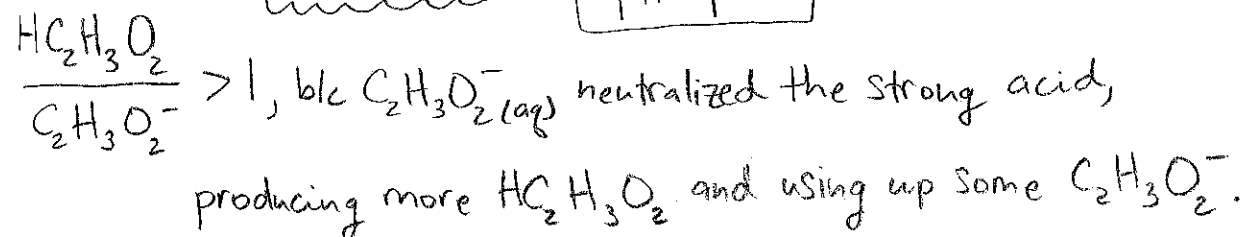 HC₂H₃O₂
C₂H₃O₂⁻ > 1, b/c C₂H₃O₂⁻(aq) neutralized the strong acid,
producing more HC₂H₃O₂ and using up some C₂H₃O₂⁻.